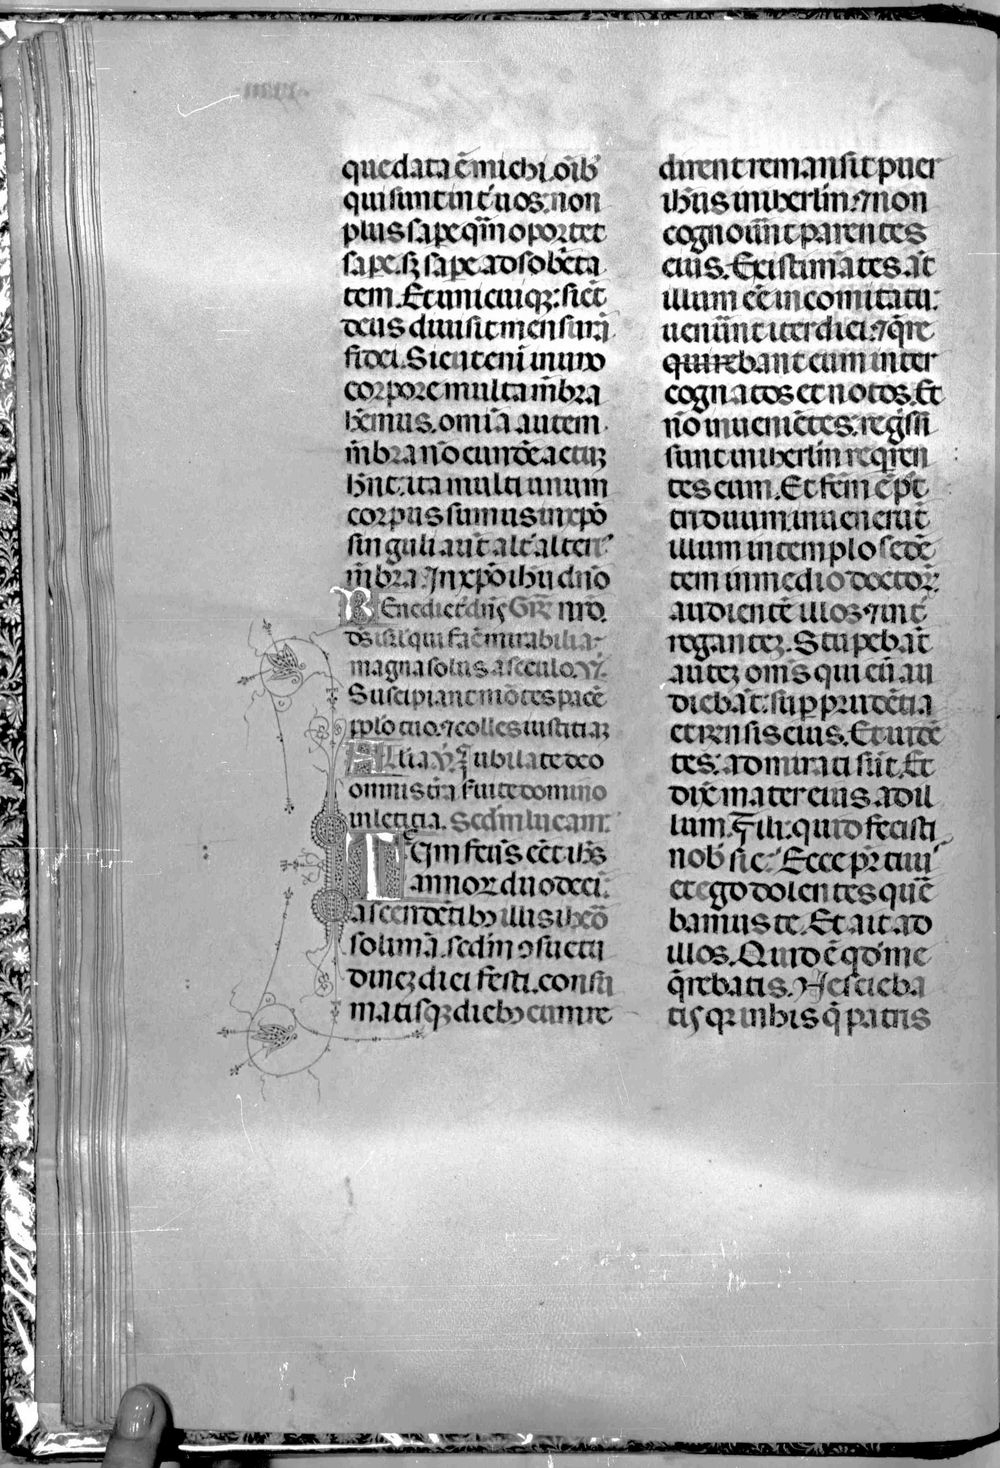 que data ē michi. oīb᷒
qui sunt int̄ uos. non
plus saꝑe qm̄ oportet
saꝑe. sꝫ saꝑe ad sobⁱeta
tem. Et unicuiqꝫ: sic̄t
deus diuisit mensurā
fidei. Sicut enī in uno
corpore multa m̄bra
hēmus. omīa autem
m̄bra nō eundē actuꝫ
hn̄t. ita multi unum
corpus sumus in xp̄o
singuli aūt alt̄ alteriꝰ
m̄bra. In xp̄o ih̄u dn̄o
Benedict᷒ dn̄s Gr̄ nr̄o.
dš isr̄l qui fac̄ mirabilia
magna solus a seculo. v̄.
Suscipiant mōtes pacē
pplo tuo. ⁊ colles iustitiaꝫ
Alīa v̄. Iubilate deo
omnis trā ẜuite domino
in leticia. Secdm lucam.
Cum fcūs eēt ih̄s
annoꝝ duodeci.
ascendētibꝫ illis ihrō
solimā. sedm ꝯsuetu
dineꝫ diei festi. consu
matisqꝫ diebꝫ cum re
dirent remansit puer
ih̄us in iherl̄m. ⁊ non
cognouūnt parentes
eius. Existimātes aūt
illum eē in comitatu:
uenūnt iter diei. ⁊ q̄re
bant eum inter
cognatos et notos. Et
nō inuenictes: reg̓ssi
sunt in iherl̄m reqren
tes eum. Et fcm̄ ē p᷒t
triduum. inuenerūt
illum in templo sedē
tem in medio doctoꝝ.
audientē illos ⁊ int̄
roganteꝫ. Stupebāt
auteꝫ omīs qui eū au
diebāt: suꝑ prudētia
et rensis eius. Et uidē
tes: admirati sūt. Et
dix̄ mater eius ad il
lum. Fili: quid fecisti
nob᷒ sic. Ecce pr̄ tuꝰ
et ego dolentes querē
bamus te. Et ait ad
illos. Quid ē qd me
q̄rebatis. Nescieba
tis qr in his q̄ patris